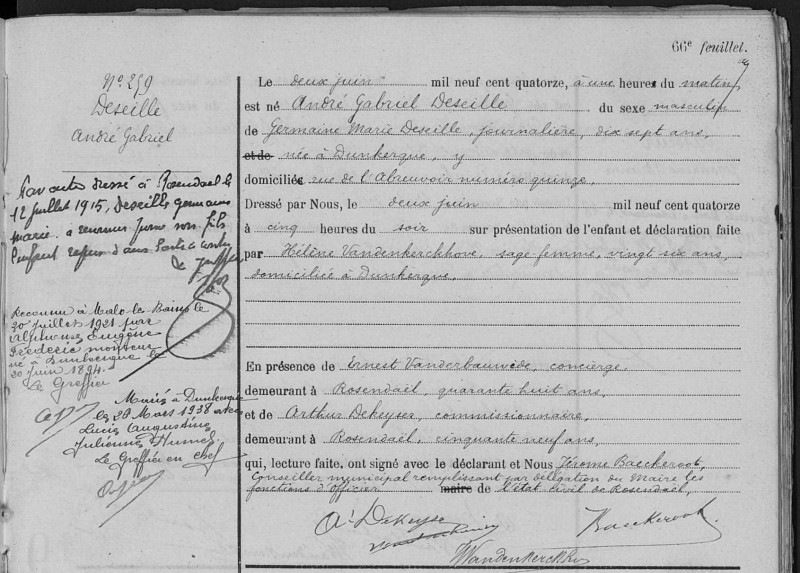 66e feuillet.
No 259
Deseille
André Gabriel
Par acte dressé à Rosendael le
12 juillet 1915, Deseille Germaine
Marie a reconnu pour son fils
l'enfant
Reconnu à Malo-les-Bains le
30 juillet 1921 par
Alphonse Eugène
Frédéric
né à Dunkerque le
30 juin 1894.
Le Greffier
Marié à Dunkerque
le 29 Mars 1938 avec
Lucie Augustine
Julienne Humel
Le Greffier en chef
Le deux juin mil neuf cent quatorze, à une heures du matin
est né André Gabriel Deseille du sexe masculin
de Germaine Marie Deseille, journalière, dix sept ans,
et de née à Dunkerque, y
domiciliée rue de l'Abreuvoir numéro quinze
Dressé par Nous, le deux juin mil neuf cent quatorze
à cinq heures du soir sur présentation de l'enfant et déclaration faite
par Hélène Vandenkerckhove, sage femme, vingt six ans,
domiciliée à Dunkerque,
En présence de Ernest Vanderbauwède, concierge
demeurant à Rosendaël, quarante huit ans,
et de Arthur Dekeyser, commissionnaire,
demeurant à Rosendaël, cinquante neuf ans,
qui, lecture faite, ont signé avec le déclarant et Nous Jérome Baeckeroot,
Conseiller municipal remplissant par délégation du Maire les
fonctions d'Officier maire de l'état civil de Rosendaël,
A. Dekeyser
Baeckeroot
Vandenkerckhove